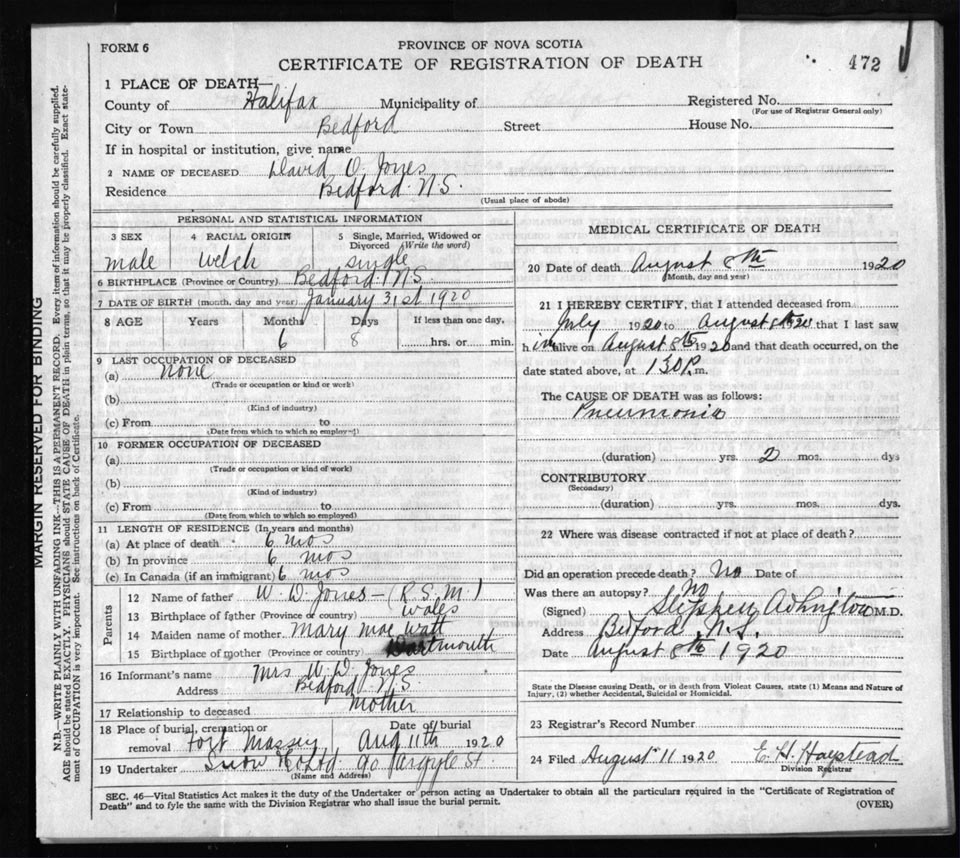 FORM 6
PROVINCE OF NOVA SCOTIA
CERTIFICATE OF REGISTRATION OF DEATH
472
1 PLACE OF DEATH—
County of Halifax Municipality of Registered No.
(For use of Registrar General only)
City or Town Bedford Street House No.
If in hospital or institution, give name
2 NAME OF DECEASED David O. Jones
Residence Bedford N.S.
(Usual place of abode)
PERSONAL AND STATISTICAL INFORMATION
3 SEX 4 RACIAL ORIGIN 5 Single, Married, Widowed or Divorced (Write the word)
male welch single
6 BIRTHPLACE (Province or Country) Bedford N.S
7 DATE OF BIRTH (month, day and year) January 31st 1920
8 AGE Years Months Days If less than one day,
6 8 hrs. or min.
9 LAST OCCUPATION OF DECEASED
(a) none
(Trade or occupation or kind or work)
(b)
(Kind of industry)
(c) From to
(Date from which to which so employed)
10 FORMER OCCUPATION OF DECEASED
(a)
(Trade or occupation or kind of work)
(b)
(Kind of industry)
(c) From to
(Date from which to which so employed)
11 LENGTH OF RESIDENCE (In years and months)
(a) At place of death 6 mos
(b) In province 6 mos
(c) In Canada (if an immigrant) 6 mos
Parents
12 Name of father W. D. Jones - (R.S.M.)
13 Birthplace of father (Province or country) Wales
14 Maiden name of mother Mary mae Watt
15 Birthplace of mother (Province or country) Dartmouth
16 Informant's name Mrs W. D. Jones
Address Bedford N.S.
17 Relationship to deceased Mother
18 Place of burial, cremation or removal Fort Massey Date of burial Aug 11th 1920
19 Undertaker Snow & Co Ltd 90 Argyle St.
(Name and Address)
MEDICAL CERTIFICATE OF DEATH
20 Date of death August 8th 1920
(Month, day and year)
21 I HEREBY CERTIFY, that I attended deceased from
July 1920 to August 8th 1920 that I last saw
him alive on August 8th 1920 and that death occurred, on the
date stated above, at 1.30 P.m.
The CAUSE OF DEATH was as follows:
Pneumonia
(duration) yrs. 2 mos. dys
CONTRIBUTORY
(Secondary)
(duration) yrs. mos. dys.
22 Where was disease contracted if not at place of death?
Did an operation precede death? No Date of
Was there an autopsy? No
(Signed) Stephen M.D.
Address Bedford, N.S.
Date August 8th 1920
State the Disease causing Death, or in death from Violent Causes, state (1) Means and Nature of
Injury, (2) whether Accidental, Suicidal or Homicidal.
23 Registrar's Record Number
24 Filed August 11 1920 E. H. Haystead
Division Registrar
SEC. 46—Vital Statistics Act makes it the duty of the Undertaker or person acting as Undertaker to obtain all the particulars required in the "Certificate of Registration of
Death" and to fyle the same with the Division Registrar who shall issue the burial permit.
(OVER)
MARGIN RESERVED FOR BINDING
N.B.—WRITE PLAINLY WITH UNFADING INK—THIS IS A PERMANENT RECORD. Every item of information should be carefully supplied.
AGE should be stated EXACTLY. PHYSICIANS should STATE CAUSE OF DEATH in plain terms, so that it may be properly classified. Exact state-
ment of OCCUPATION is very important. See instructions on back of Certificate.